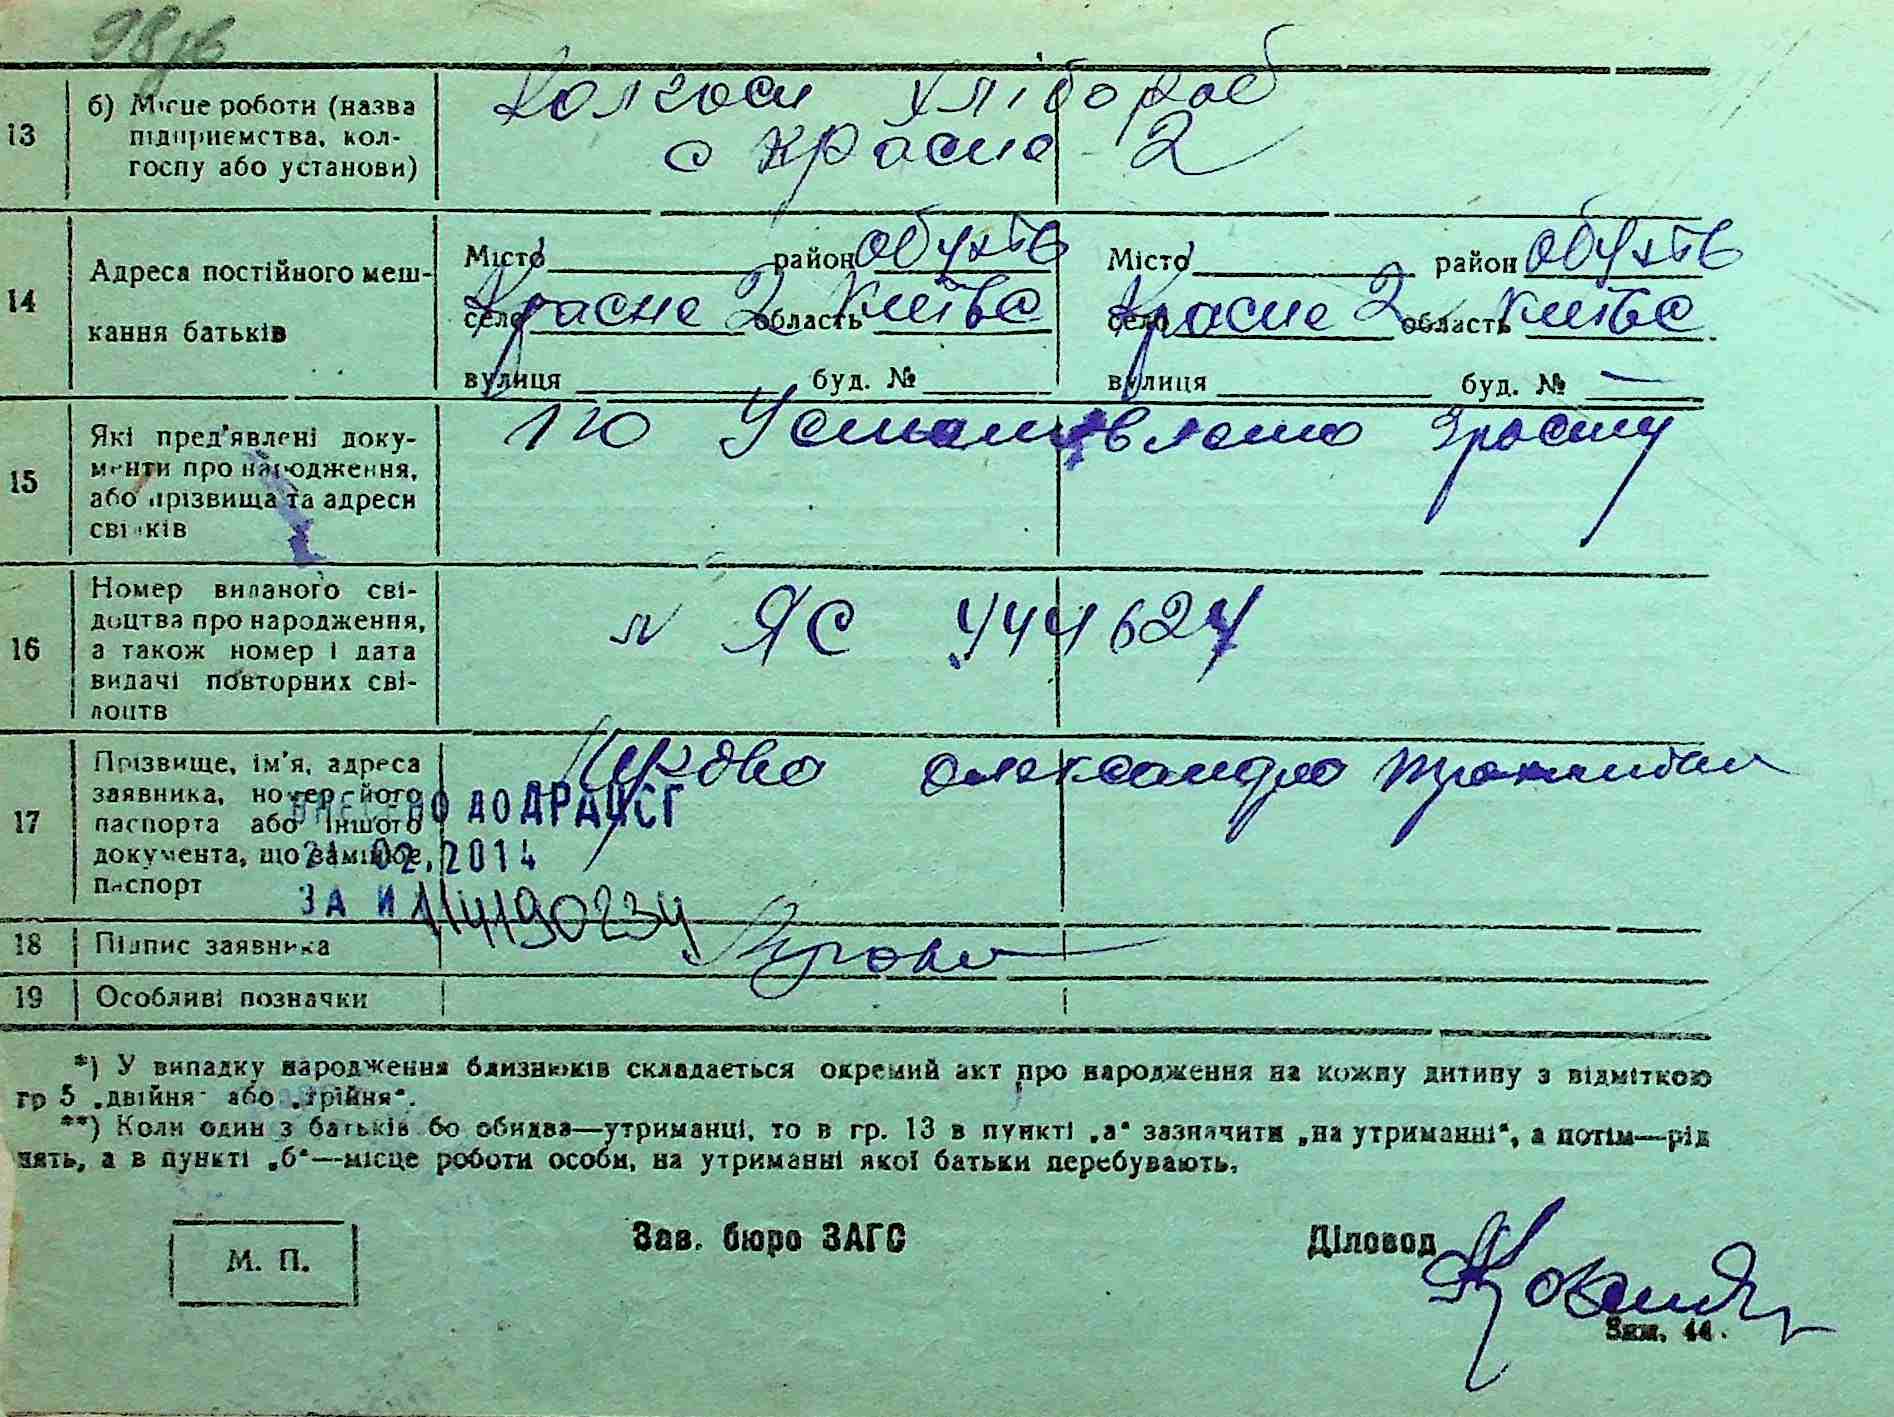 98
13 б) Місце роботи (назва підприємства, колгоспу або установи)
Колгосп хлібороб
с Красне 2
14 Адреса постійного мешкання батьків
Місто район Обухів Місто район Обухів
село Красне 2 область Київс село Красне 2 область Київс
вулиця буд. № вулиця буд. № —
15 Які пред'явлені документи про народження, або прізвища та адреси свідків
По Установлено
16 Номер виданого свідоцтва про народження, а також номер і дата видачі повторних свідоцтв
№ ЯС 444624
17 Прізвище, ім'я, адреса заявника, номер його паспорта або іншого документа, що заміняє паспорт
Олександра
ВНЕСЕНО ДО ДРАЦСГ
21 02.2014
ЗА №
114190234
18 Підпис заявника
19 Особливі позначки
*) У випадку народження близнюків складається окремий акт про народження на кожну дитину з відміткою
гр 5 „двійня" або „трійня".
**) Коли один з батьків бо обидва—утриманці, то в гр. 13 в пункті „а" зазначити „на утриманні", а потім—рід
нять, а в пункті „б"—місце роботи особи, на утриманні якої батьки перебувають.
М. П. Зав. бюро ЗАГС Діловод
Зам. 44.